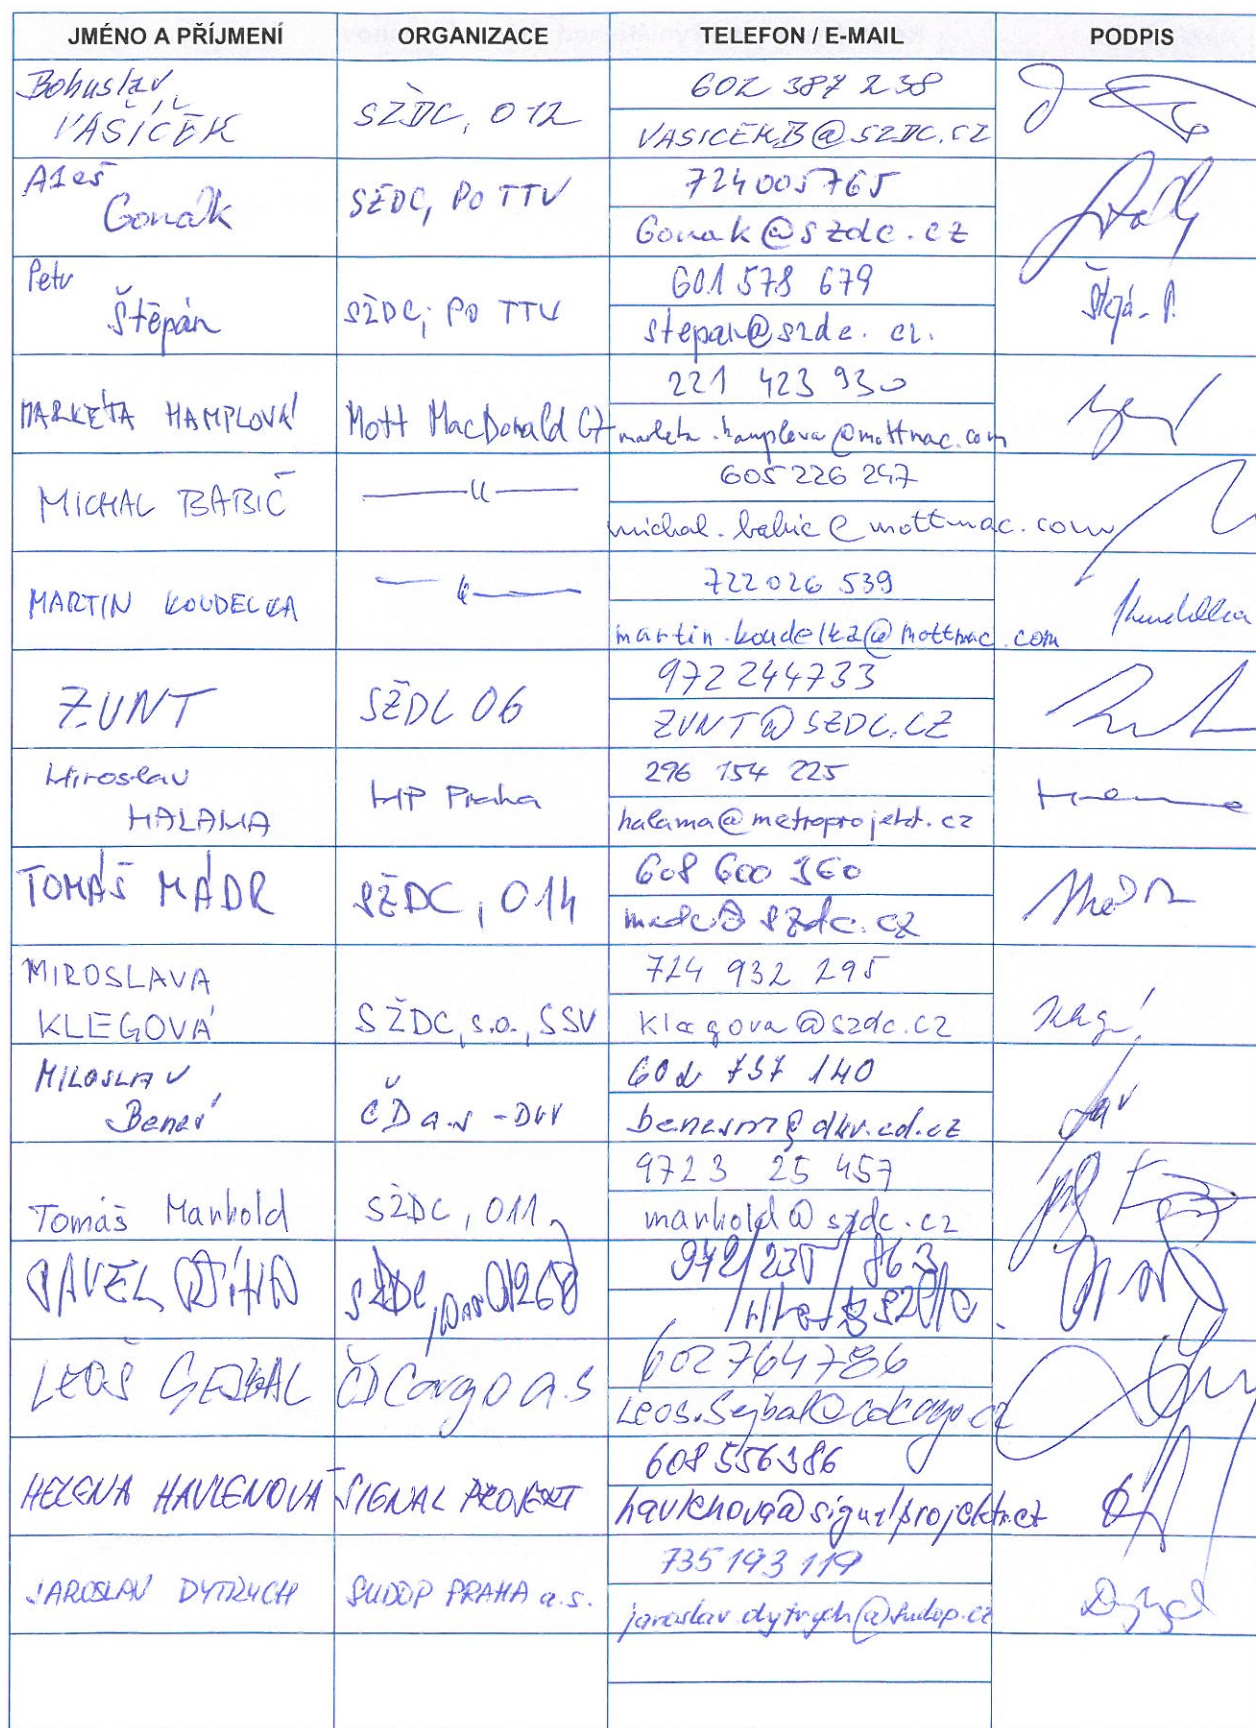 JMÉNO A PŘÍJMENÍ ORGANIZACE TELEFON / E-MAIL PODPIS
Bohuslav VAŠÍČEK SŽDC, O12 602 387 238
VASICEKB@SZDC.CZ
Aleš Gonák SŽDC, PO TTV 724005765
Gonak@szdc.cz
Petr Štěpán SŽDC, PO TTV 601 578 679
stepan@szdc.cz.
MARKÉTA HAMPLOVÁ Mott MacDonald CZ 221 423 930
marketa.hamplova@mottmac.com
MICHAL BABIČ —〃— 605 226 247
michal.babic@mottmac.com
MARTIN KOUDELKA —〃— 722 026 539
martin.koudelka@mottmac.com
ŽUNT SŽDC O6 972 244733
ZUNT@SZDC.CZ
Miroslav HALAMA MP Praha 296 154 225
halama@metroprojekt.cz
TOMÁŠ MÁDR SŽDC, O14 608 600 360
madr@szdc.cz
MIROSLAVA KLEGOVÁ SŽDC, s.o., SSV 724 932 295
Klegova@szdc.cz
MILOSLAV Beneš ČD a.s - DKV 602 737 140
benesm@dkv.cd.cz
Tomáš Mankold SŽDC, O11 9723 25 457
mankold@szdc.cz
PAVEL SŽDC, 972/235/863
LEOŠ SEJBAL ČD Cargo a.s 602764786
Leos.Sejbal@cdcargo.cz
HELENA HAVLENOVÁ SIGNAL PROJEKT 608 556386
havlenova@signalprojekt.cz
JAROSLAV DYTRYCH SUDOP PRAHA a.s. 735 193 119
jaroslav.dytrych@sudop.cz